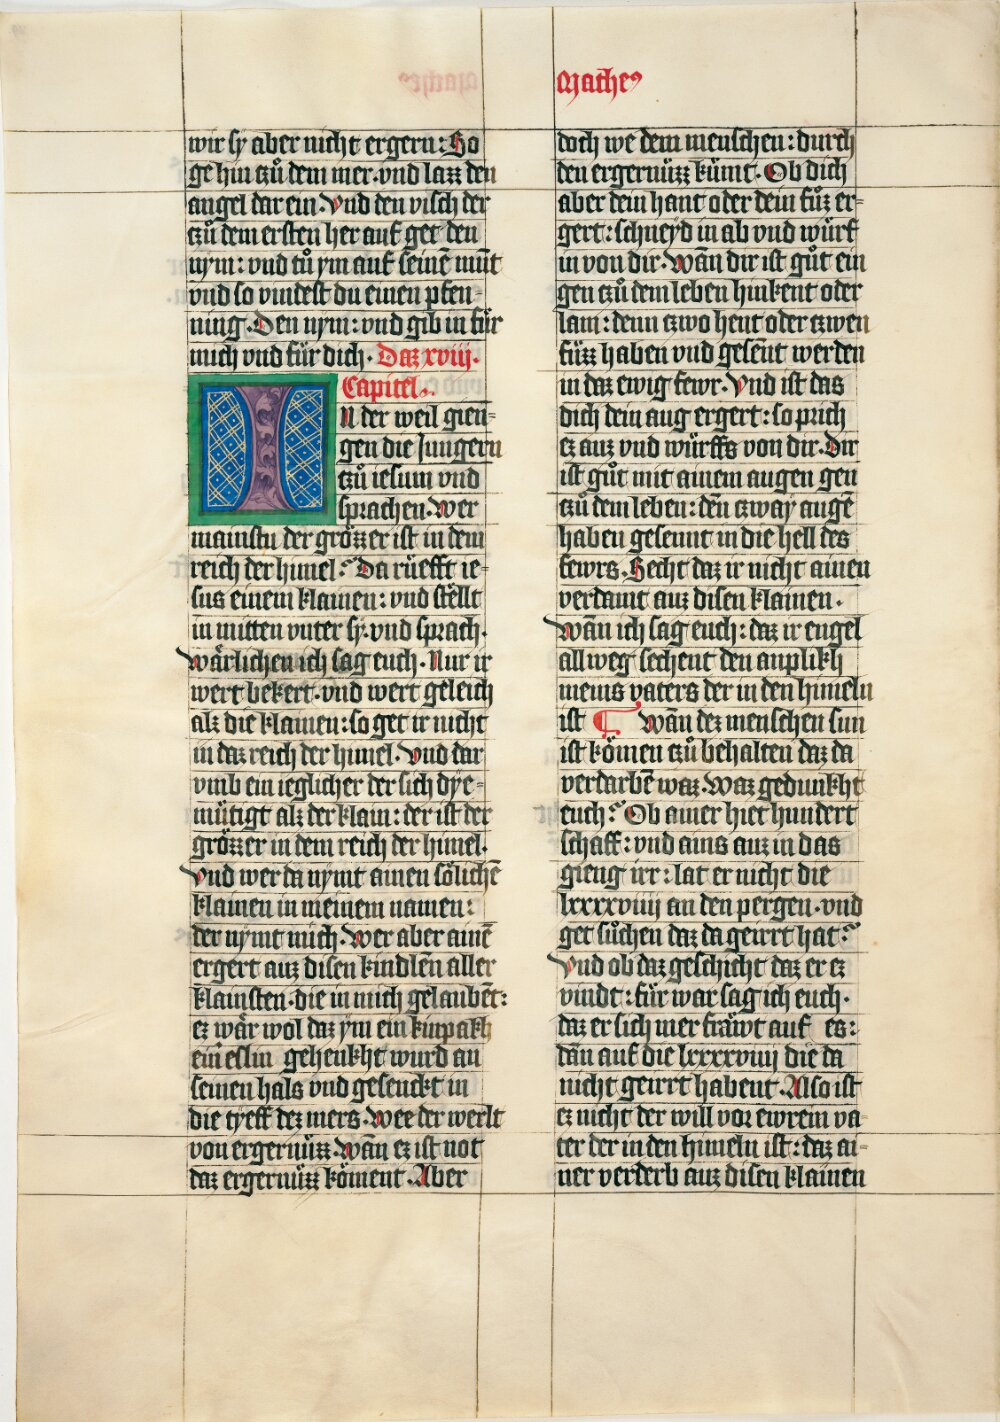 Mathe⁹
wir sy aber nicht ergern: So
ge hin tzů dem mer·vnd lazz den
angel dar ein·Vnd den visch der
tzů dem ersten her auf gee den
nym: vnd tů ym auf seinē mūt
vnd so vindest du einen pfen
ning·Den nym: vnd gib in für
mich vnd für dich· Daz xviij·
Capitel·
IN der weil gien-
gen die Jungern
tzů iesum vnd
sprachen·Wer
mainstu der grözzer ist in dem
reich der himel? Da rüefft ie-
sus einem klainen: vnd stellt
in mitten vnter sy·vnd sprach·
Wärlichen ich sag euch·Nur ir
wert bekert·vnd wert geleich
alz die klainen: so get ir nicht
in daz reich der himel·Vnd dar
vmb ein ieglicher der sich dye-
mütigt alz der klain: der ist der
grözzer in dem reich der himel·
Vnd wer da nymt ainen sölichē
klainen in meinem namen:
der nymt mich·Wer aber ainē
ergert auz disen kindlen aller
klainsten·die in mich gelaubēt:
ez wär wol daz ym ein kinpakh
ein eslin gehenkht wurd an
seinen hals vnd gesenckt in
die tyeff dez mers·Wee der werlt
von ergernüzz·Wān ez ist not
daz ergernüzz köment·Aber
doch we dem menschen: durch
den ergernüzz kümt·Ob dich
aber dein hant oder dein fůz er-
gert: schneyd in ab vnd würf
in von dir·Wān dir ist gůt ein
gen tzů dem leben hinkent oder
lam: denn tzwo hent oder tzwen
füzz haben vnd gesent werden
in daz ewig fewr·Vnd ist das
dich dein aug ergert: so prich
ez auz vnd würffs von dir·Dir
ist gůt mit ainem augen gen
tzů dem leben: dēn tzway augē
haben gesennt in die hell des
fewrs·Secht daz ir nicht ainen
verdamt auz disen klainen·
Wān ich sag euch: daz ir engel
allweg sechent den anplikh
meins vaters der in den himeln
ist ¶ Wān dez menschen sun
ist kömen tzů behalten daz da
verdarbē waz·Waz gedunkht
euch? Ob ainer hiet hundert
schaff: vnd ains auz in das
gieng irr: lat er nicht die
lxxxxviiij an den pergen·vnd
get sůchen daz da geirrt hat?
Vnd ob daz geschicht daz er ez
vindt: für war sag ich euch·
daz er sich mer fräwt auf es:
dān auf die lxxxxviiij die da
nicht geirrt habent·Also ist
ez nicht der will vor ewrem va-
ter der in den himeln ist: daz ai-
ner verderb auz disen klainen